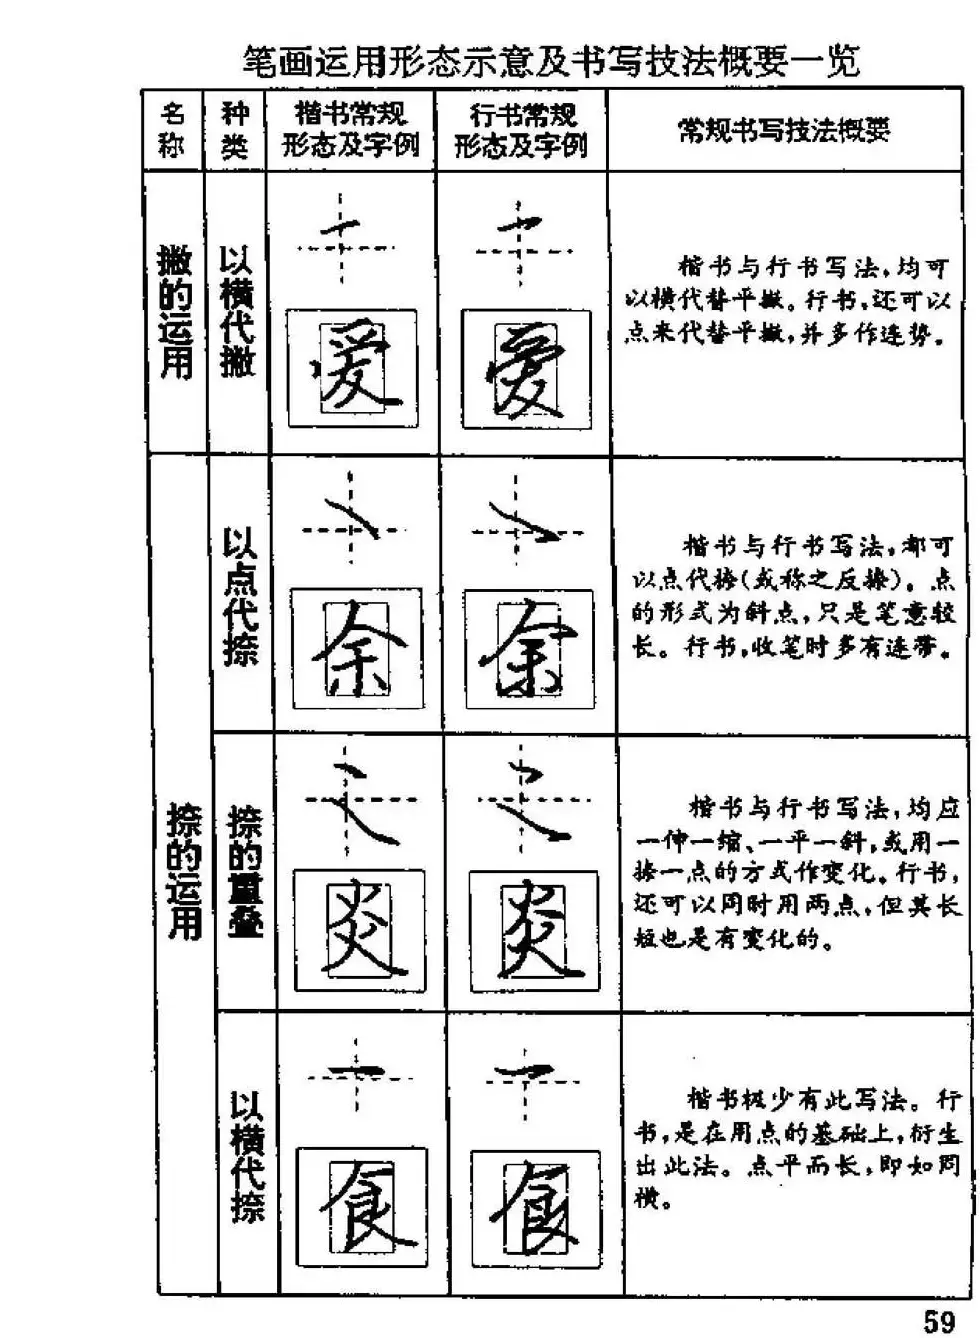 笔画运用形态示意及书写技法概要一览
名称
种类
楷书常规
形态及字例
行书常规
形态及字例
常规书写技法概要
撇的运用
以横代撇
爱
爱
楷书与行书写法,均可
以横代替平撇。行书,还可以
点来代替平撇,并多作连势。
捺的运用
以点代捺
余
余
楷书与行书写法,都可
以点代捺(或称之反捺)。点
的形式为斜点,只是笔意较
长。行书,收笔时多有连带。
捺的重叠
炎
炎
楷书与行书写法,均应
一伸一缩、一平一斜,或用一
捺一点的方式作变化。行书,
还可以同时用两点,但其长
短也是有变化的。
以横代捺
食
食
楷书极少有此写法。行
书,是在用点的基础上,衍生
出此法。点平而长,即如同
横。
59